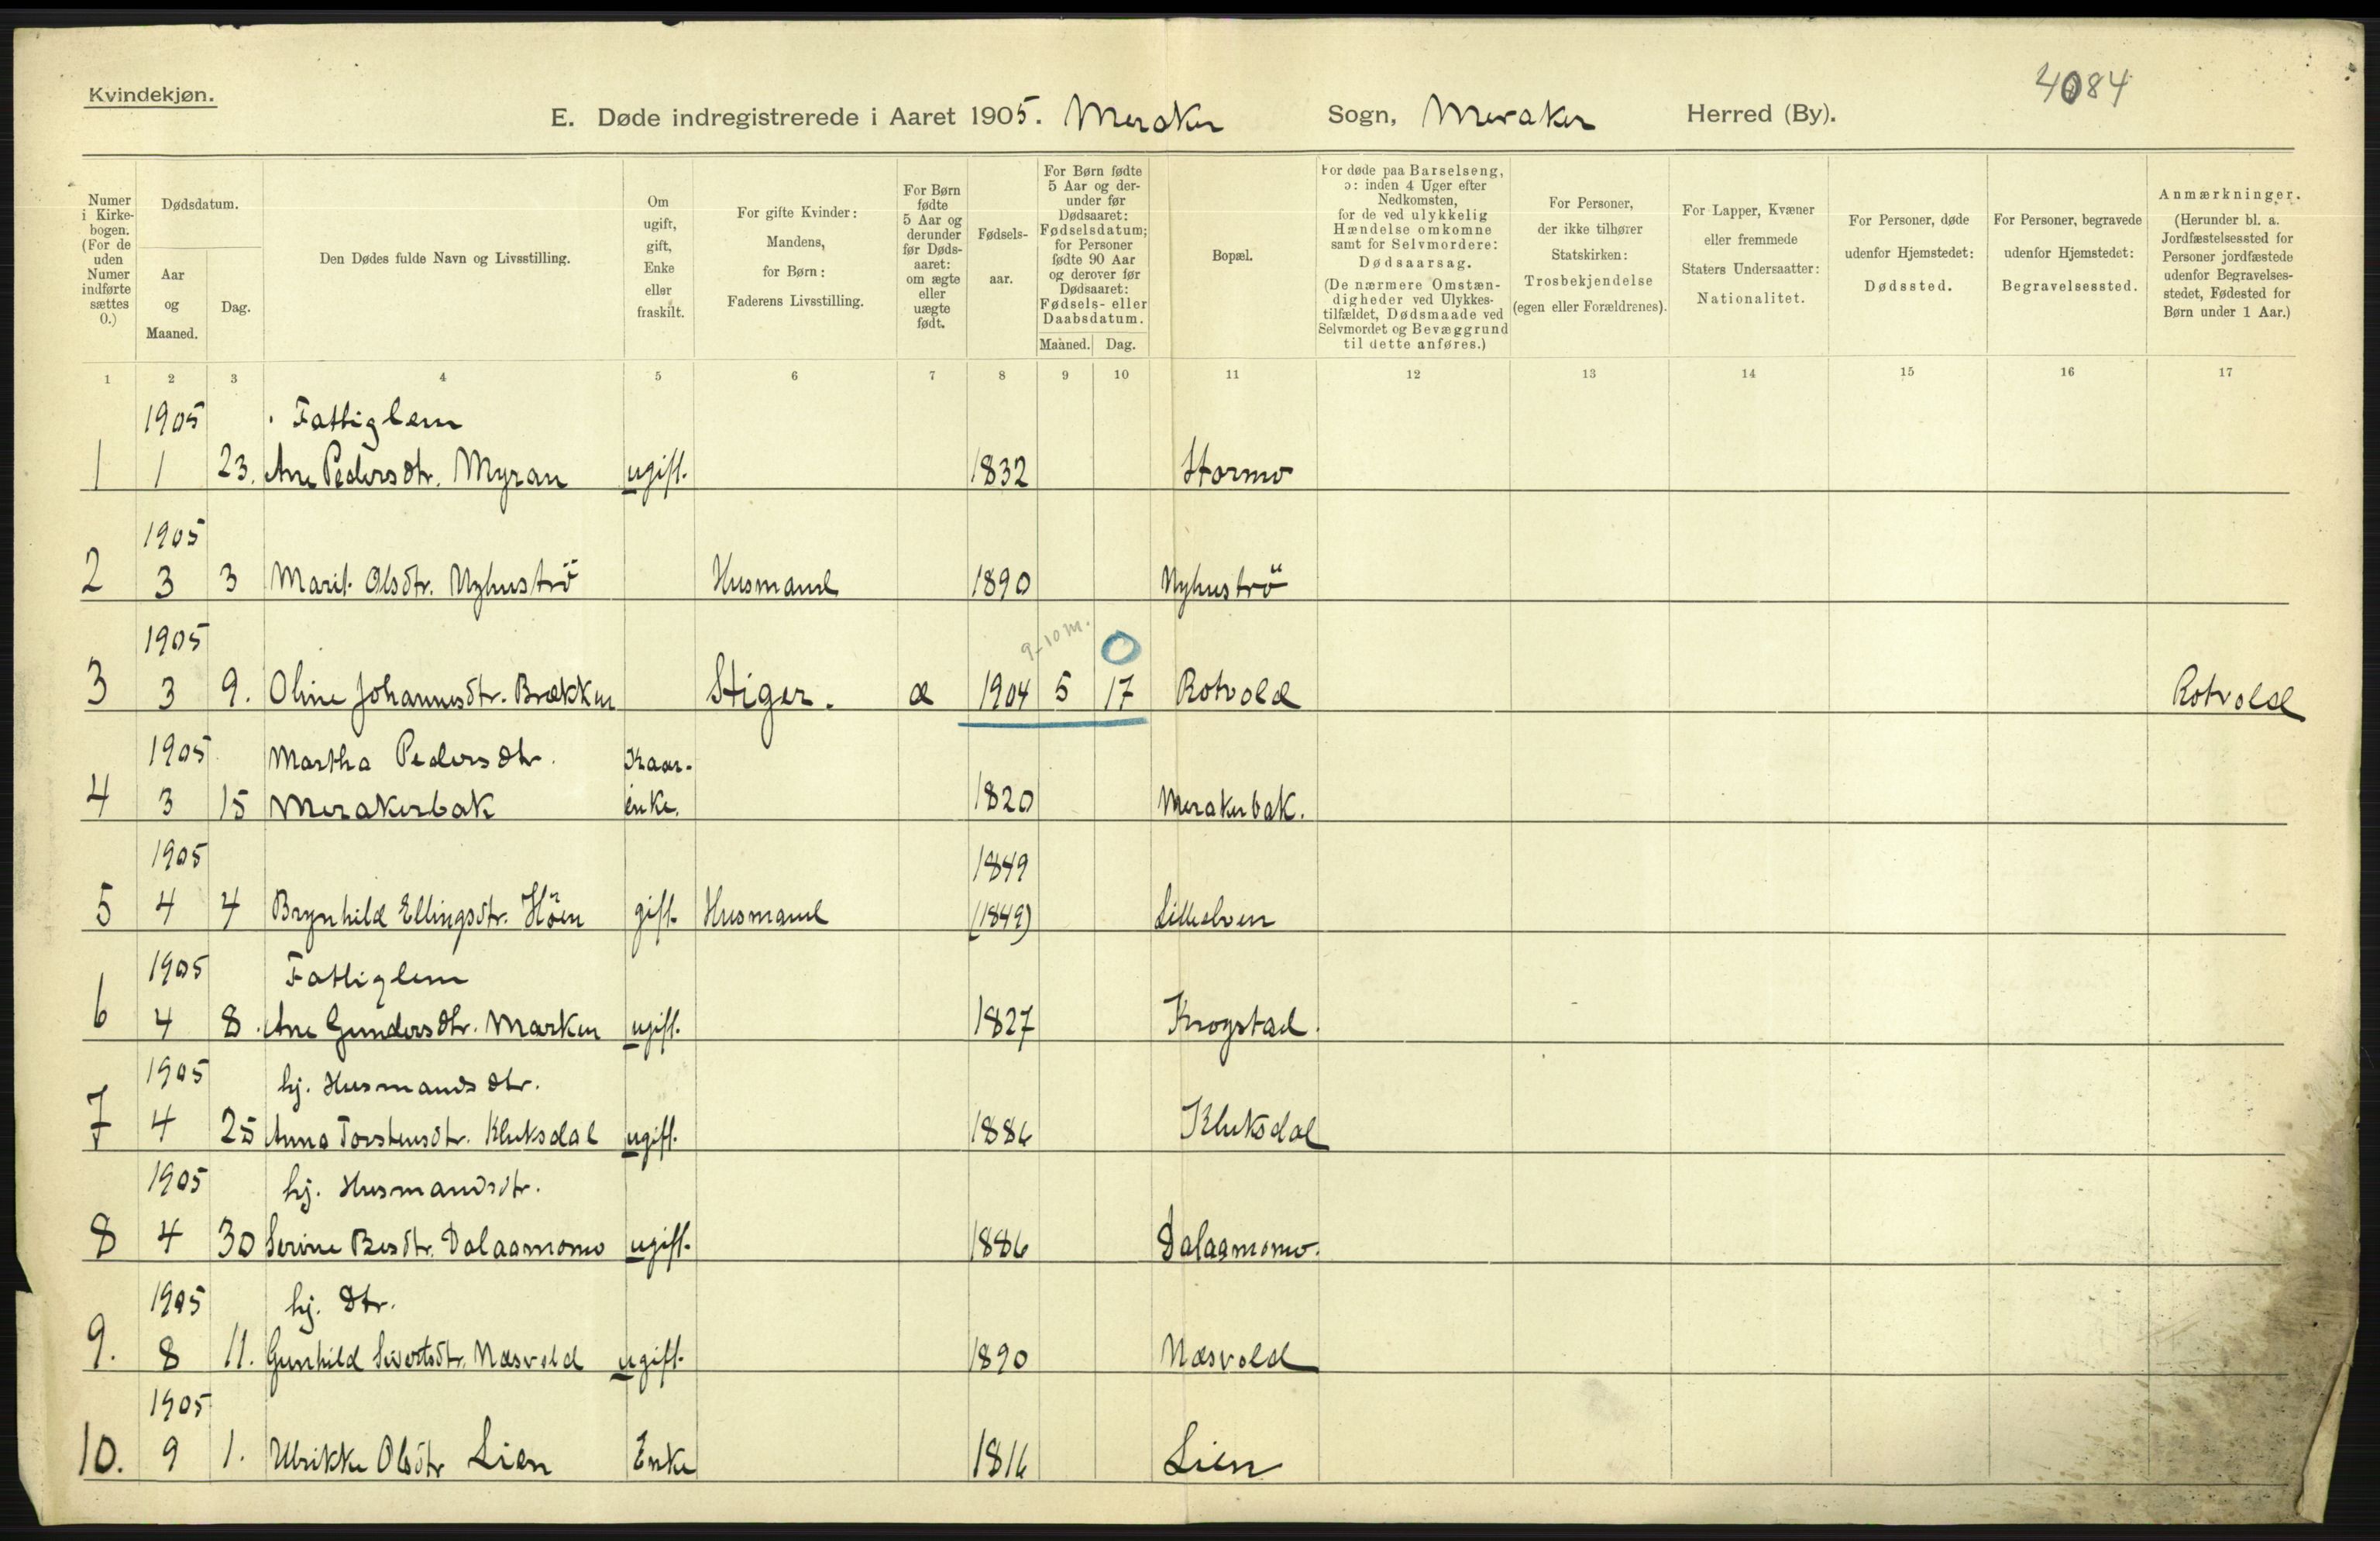 Kvindekjøn.
4084
E. Døde indregistrerede i Aaret 1905. Meraker Sogn, Meraker Herred (By).
Numer i Kirkebogen. (For de uden Numer indførte sættes 0.)
Dødsdatum.
Aar og Maaned.
Dag.
Den Dødes fulde Navn og Livsstilling.
Om ugift, gift, Enke eller fraskilt.
For gifte Kvinder: Mandens, for Børn: Faderens Livsstilling.
For Børn fødte 5 Aar og derunder før Dødsaaret: om ægte eller uægte født.
Fødselsaar.
For Børn fødte 5 Aar og derunder før Dødsaaret: Fødselsdatum; for Personer fødte 90 Aar og derover før Dødsaaret: Fødsels- eller Daabsdatum.
Maaned. Dag.
Bopæl.
For døde paa Barselseng, ɔ: inden 4 Uger efter Nedkomsten, for de ved ulykkelig Hændelse omkomne samt for Selvmordere: Dødsaarsag. (De nærmere Omstændigheder ved Ulykkestilfældet, Dødsmaade ved Selvmordet og Bevæggrund til dette anføres.)
For Personer, der ikke tilhører Statskirken: Trosbekjendelse (egen eller Forældrenes).
For Lapper, Kvæner eller fremmede Staters Undersaatter: Nationalitet.
For Personer, døde udenfor Hjemstedet: Dødssted.
For Personer, begravede udenfor Hjemstedet: Begravelsessted.
Anmærkninger. (Herunder bl. a. Jordfæstelsessted for Personer jordfæstede udenfor Begravelsesstedet, Fødested for Børn under 1 Aar.)
1 2 3 4 5 6 7 8 9 10 11 12 13 14 15 16 17
1905 Fattiglem
1 1 23. Ane Pedersdtr. Myran ugift. 1832 Stormo
1905
2 3 3 Marit Olsdtr. Nyhuströ Husmand 1890 Nyhuströ
1905 9-10 m. 0
3 3 9. Oline Johannesdtr. Brækken Stiger. æ 1904 5 17 Rotvold Rotvold
1905 Martha Pedersdtr. Kaar-
4 3 15 Merakerbak enke. 1820 Merakerbak.
1905 1849
5 4 4 Brynhild Ellingsdtr. Höen gift Husmand (1849) Lilleelven
1905 Fattiglem
6 4 8. Ane Gundersdtr. Marken ugift. 1827 Krogstad.
1905 hj. Husmandsdtr.
7 4 25 Anna Torstensdtr. Kluksdal ugift. 1886 Kluksdal
1905 hj. Husmandsdtr.
8 4 30 Serine Besdtr. Dalaamomo ugift. 1886 Dalaamomo.
1905 hj. Dtr.
9. 8 11. Gunhild Sivertsdtr. Næsvold ugift. 1890 Næsvold
1905
10. 9 1. Ulrikke Olsdtr Lien Enke 1816 Lien